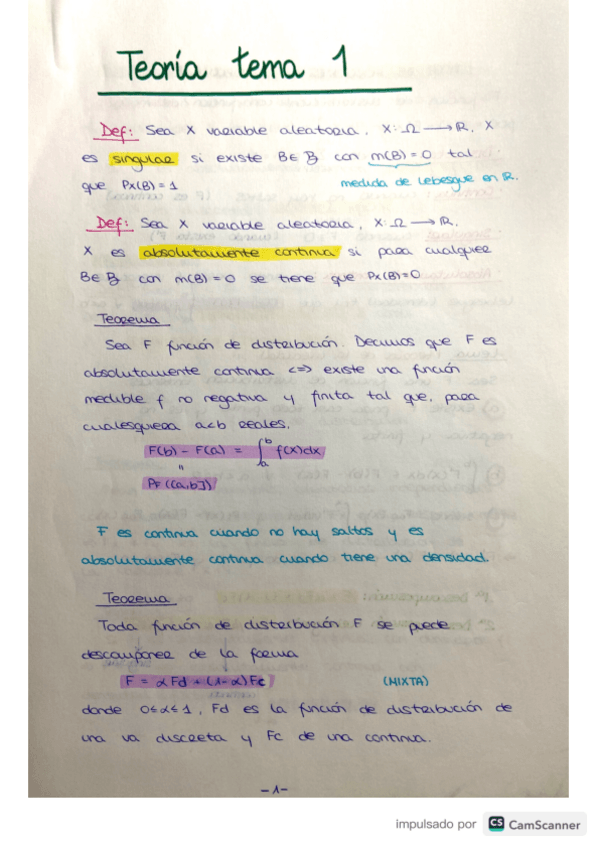 Teoría tema 1
Def: Sea X variable aleatoria, X: Ω → ℝ, X
es singular si existe B∈ℬ con m(B) = 0 tal
que Px(B) = 1
medida de Lebesgue en ℝ.
Def: Sea X variable aleatoria, X: Ω → ℝ,
X es absolutamente continua si para cualquier
B∈ℬ con m(B) = 0 se tiene que Px(B)=0
Teorema
Sea F función de distribución. Decimos que F es
absolutamente continua <=> existe una función
medible f no negativa y finita tal que, para
cualesquiera a<b reales,
F(b) - F(a) = ∫_a^b f(x)dx
"
PF ((a,b])
F es continua cuando no hay saltos y es
absolutamente continua cuando tiene una densidad.
Teorema
Toda función de distribución F se puede
descomponer de la forma
F = αFd + (1-α)Fc (MIXTA)
donde 0≤α≤1, Fd es la función de distribución de
una va discreta y Fc de una continua.
-1-
impulsado por CS CamScanner